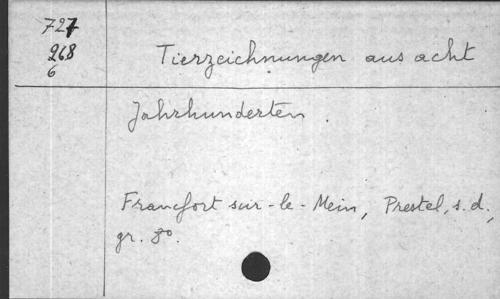 727
268
6
Tierzeichnungen aus acht
Jahrhunderten.
Francfort sur-le-Mein, Prestel, s.d.,
gr. 8°.